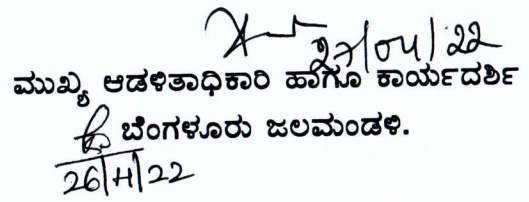 27/04/22
ಮುಖ್ಯ ಆಡಳಿತಾಧಿಕಾರಿ ಹಾಗೂ ಕಾರ್ಯದರ್ಶಿ
ಬೆಂಗಳೂರು ಜಲಮಂಡಳಿ.
26/4/22